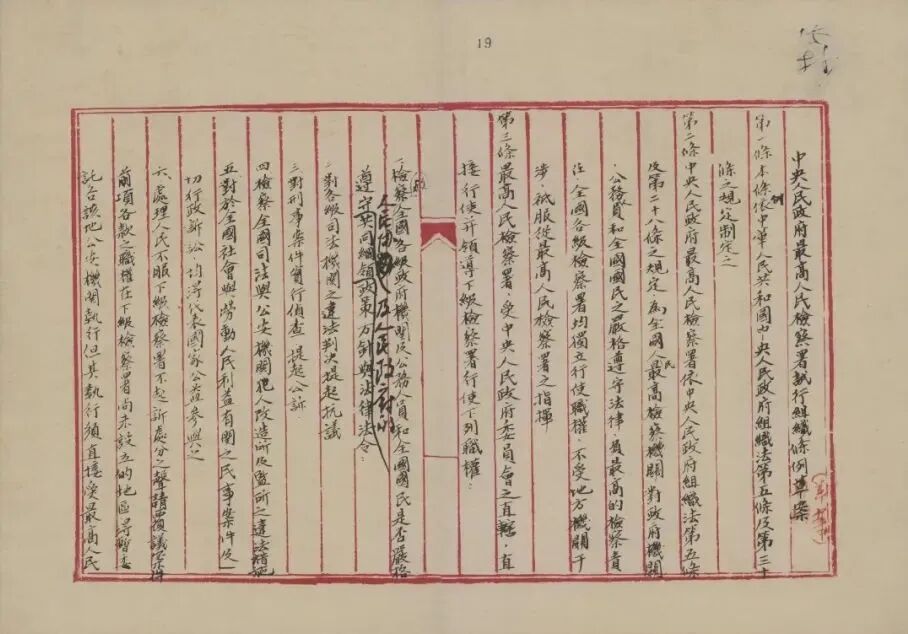 19
中央人民政府最高人民檢察署試行組織條例草案
第一條 本條例依中華人民共和國中央人民政府組織法第五條及第三十
條之規定制定之
第二條 中央人民政府最高人民檢察署依中央人民政府組織法第五條
及第二十八條之規定，為全國人民最高檢察機關，對政府機關
、公務員和全國國民之嚴格遵守法律，負最高的檢察責
任，全國各級檢察署均獨立行使職權，不受地方機關干
涉，祇服從最高人民檢察署之指揮
第三條 最高人民檢察署，受中央人民政府委員會之直轄，直
接行使并領導下級檢察署行使下列職權：
一、檢察全國各級政府機關及公務人員和全國國民是否嚴格
遵守人民政協共同綱領及人民政府的政策方針與法律法令：
二、對各級司法機關之違法判決提起抗議
三、對刑事案件實行偵查，提起公訴
四、檢察全國司法與公安機關犯人改造所及監所之違法措施
五、對於全國社會與勞動人民利益有關之民事案件及一
切行政訴訟，均得代表國家公益參與之
六、處理人民不服下級檢察署不起訴處分之聲請覆議案件
前項各款之職權在下級檢察署尚未設立的地區得暫委
託各該地公安機關執行但其執行須直接受最高人民